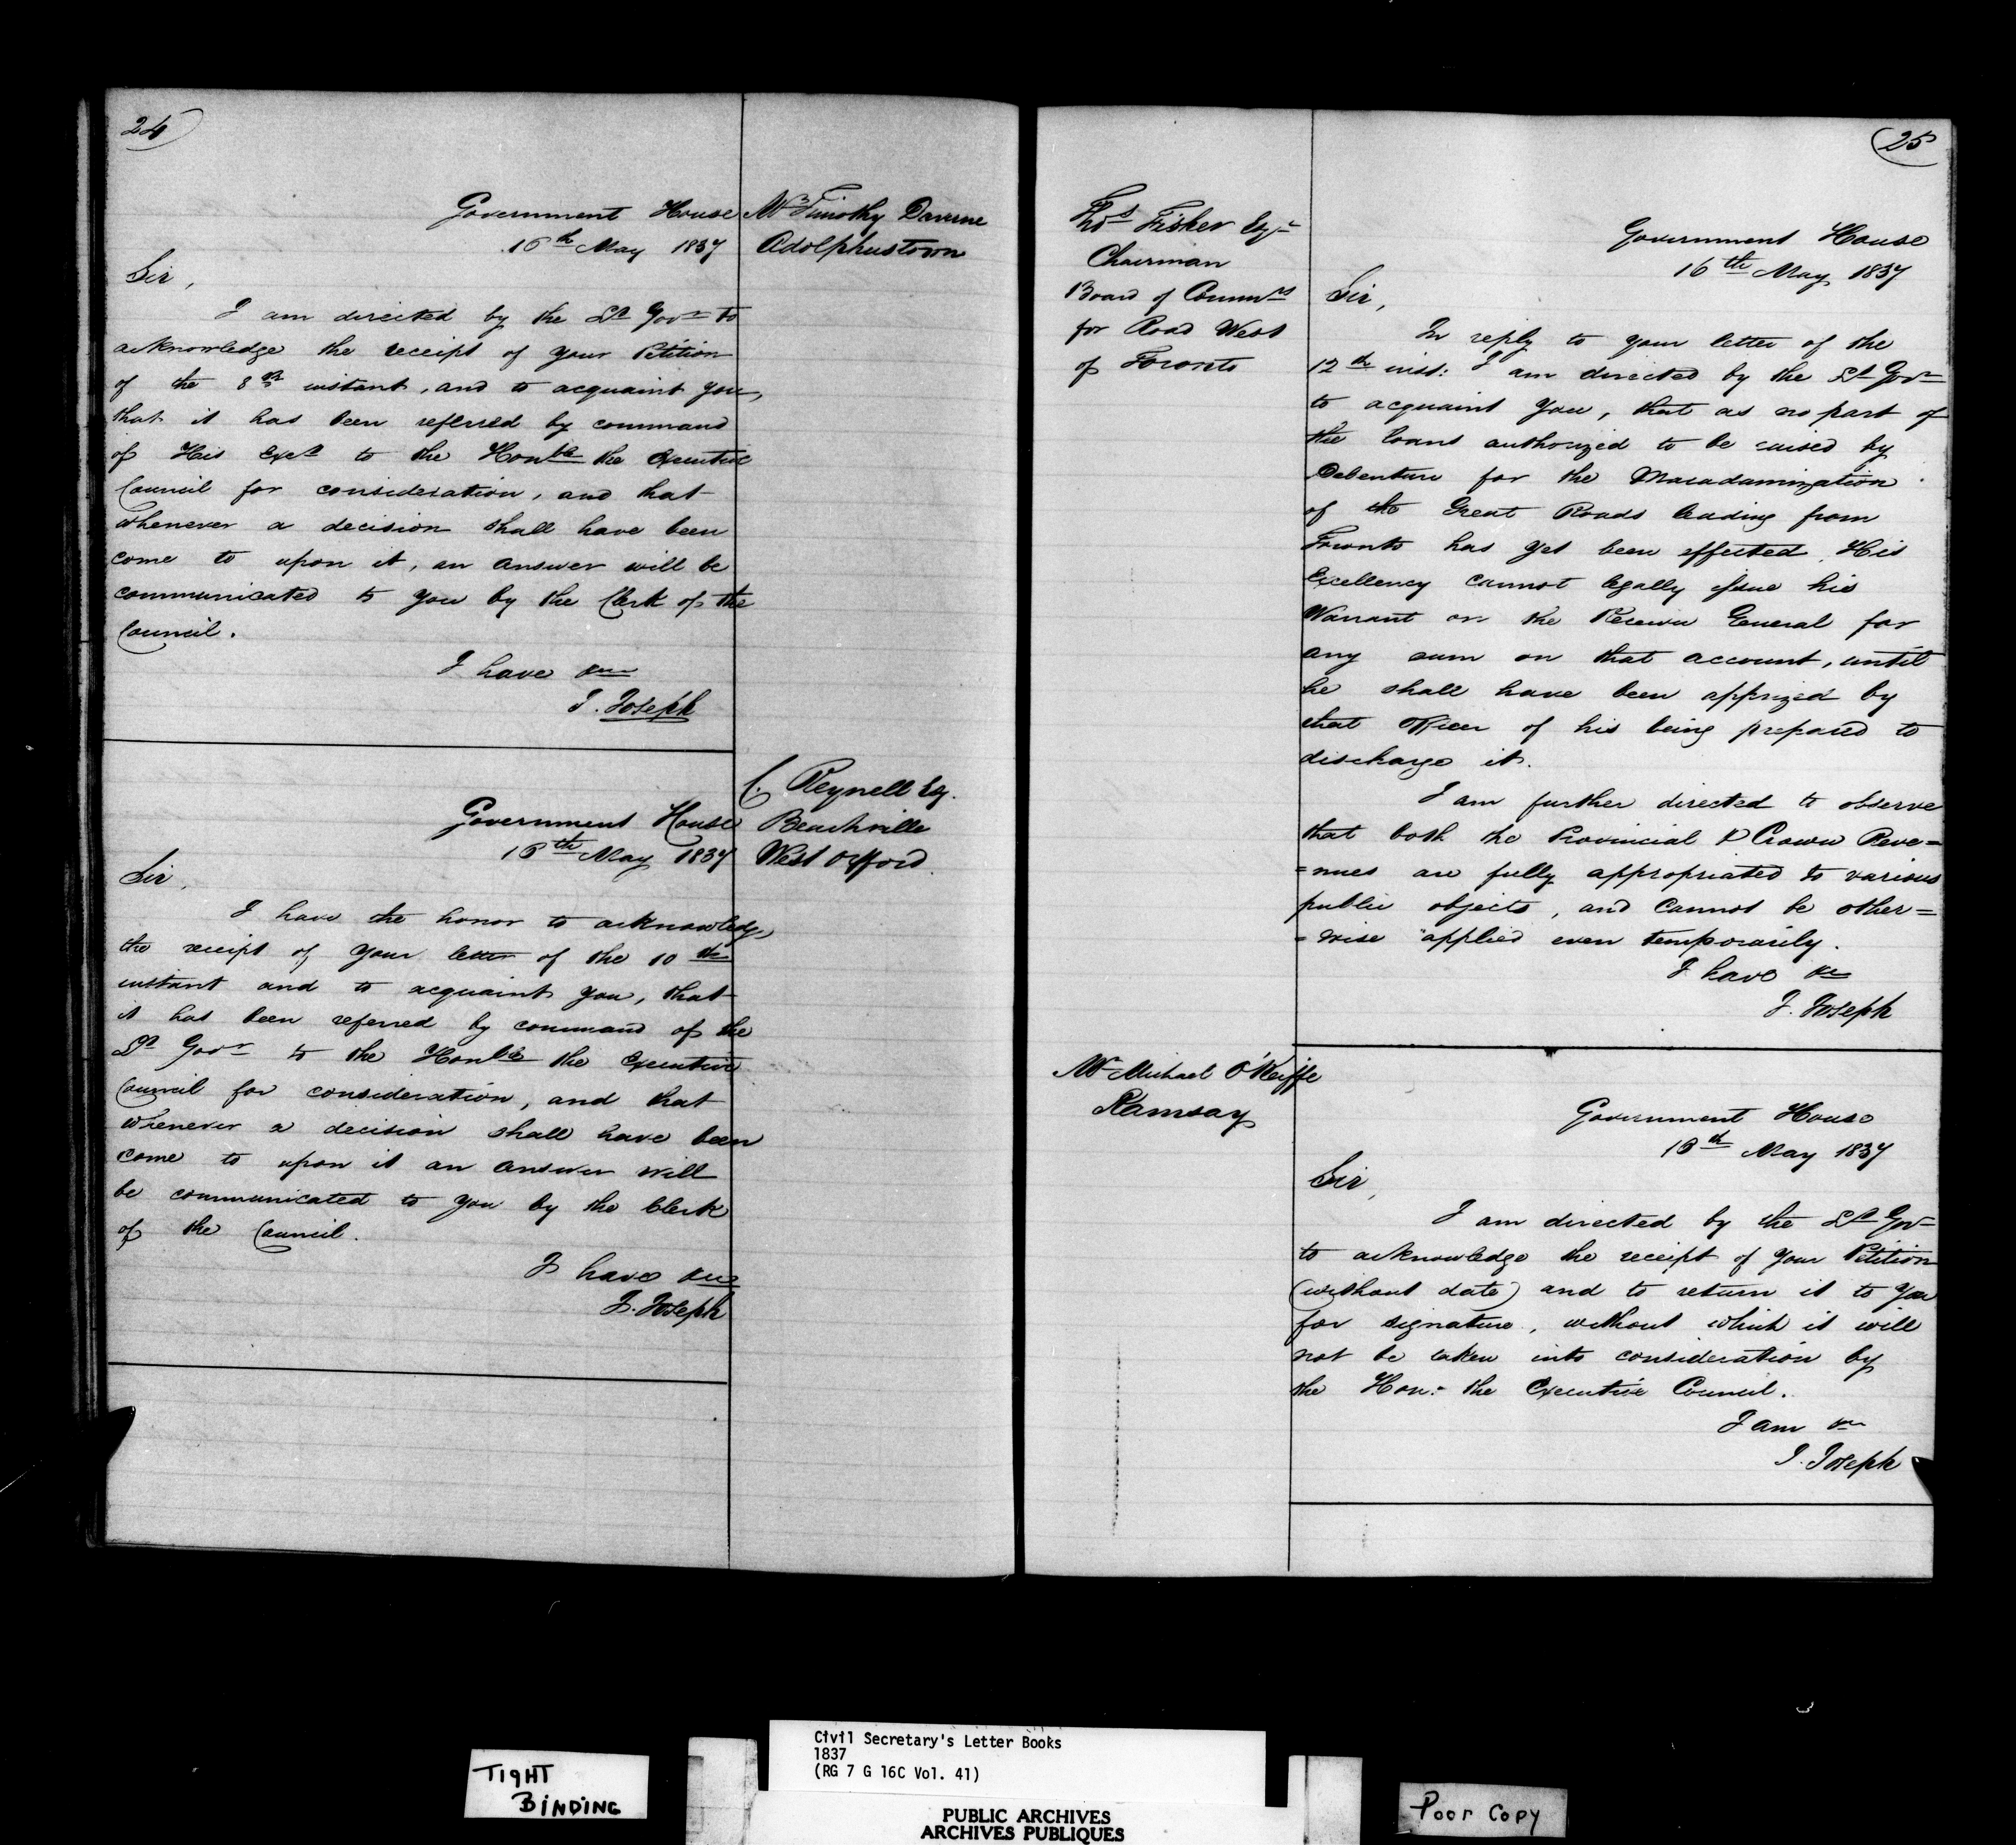 24
Government House
16th May 1837
Mr Timothy Daverne
Adolphustown
Sir,
I am directed by the Lt Govr to
acknowledge the receipt of your Petition
of the 8th instant, and to acquaint you,
that it has been referred by command
of His Excy to the Honble the Executive
Council for consideration, and that
whenever a decision shall have been
come to upon it, an answer will be
communicated to you by the Clerk of the
Council.
I have &c
J. Joseph
C. Reynell Esq.
Beachville
West Oxford.
Government House
16th May 1837
Sir,
I have the honor to acknowledge
the receipt of your letter of the 10th
instant and to acquaint you, that
it has been referred by command of the
Lt Govr to the Honble the Executive
Council for consideration, and that
whenever a decision shall have been
come to upon it an answer will
be communicated to you by the Clerk
of the Council.
I have &c
J. Joseph
25
Thos Fisher Esqr
Chairman
Board of Commrs
for Road West
of Toronto
Government House
16th May 1837
Sir,
In reply to your letter of the
12th inst: I am directed by the Lt Govr
to acquaint you, that as no part of
the loans authorized to be raised by
Debenture for the Macadamization
of the Great Roads leading from
Toronto has yet been effected, His
Excellency cannot legally issue his
Warrant on the Receiver General for
any sum on that account, until
he shall have been apprized by
that Officer of his being prepared to
discharge it.
I am further directed to observe
that both the Provincial & Crown Reve=
=nues are fully appropriated to various
public objects, and cannot be other=
=wise applied even temporarily.
I have &c
J. Joseph
Mr Michael O'Keiffe
Ramsay
Government House
16th May 1837
Sir,
I am directed by the Lt Govr
to acknowledge the receipt of your Petition
(without date) and to return it to you
for signature, without which it will
not be taken into consideration by
the Hon: the Executive Council.
I am &c
J. Joseph
TIGHT
BINDING
Civil Secretary's Letter Books
1837
(RG 7 G 16C Vol. 41)
PUBLIC ARCHIVES
ARCHIVES PUBLIQUES
Poor Copy